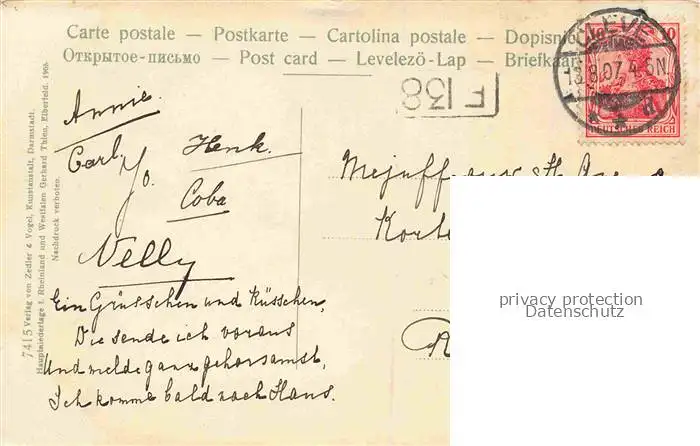 Carte postale — Postkarte — Cartolina postale — Dopisnic
Открытое-письмо — Post card — Levelező-Lap — Briefkaar
CLEVE
13.8.07. 4-5N
10
DEUTSCHES REICH
F 138
Annie.
Carl.
Jo.
Henk.
Coba
Nelly
Mejuffrouw
Korte
privacy protection
Datenschutz
Ein Grüsschen und Küsschen,
Die sende ich voraus
Und melde ganz gehorsamst,
Ich komme bald nach Haus.
7415 Verlag von Zedler & Vogel, Kunstanstalt, Darmstadt.
Hauptniederlage f. Rheinland und Westfalen Gerhard Thien, Elberfeld. 1906.
Nachdruck verboten.